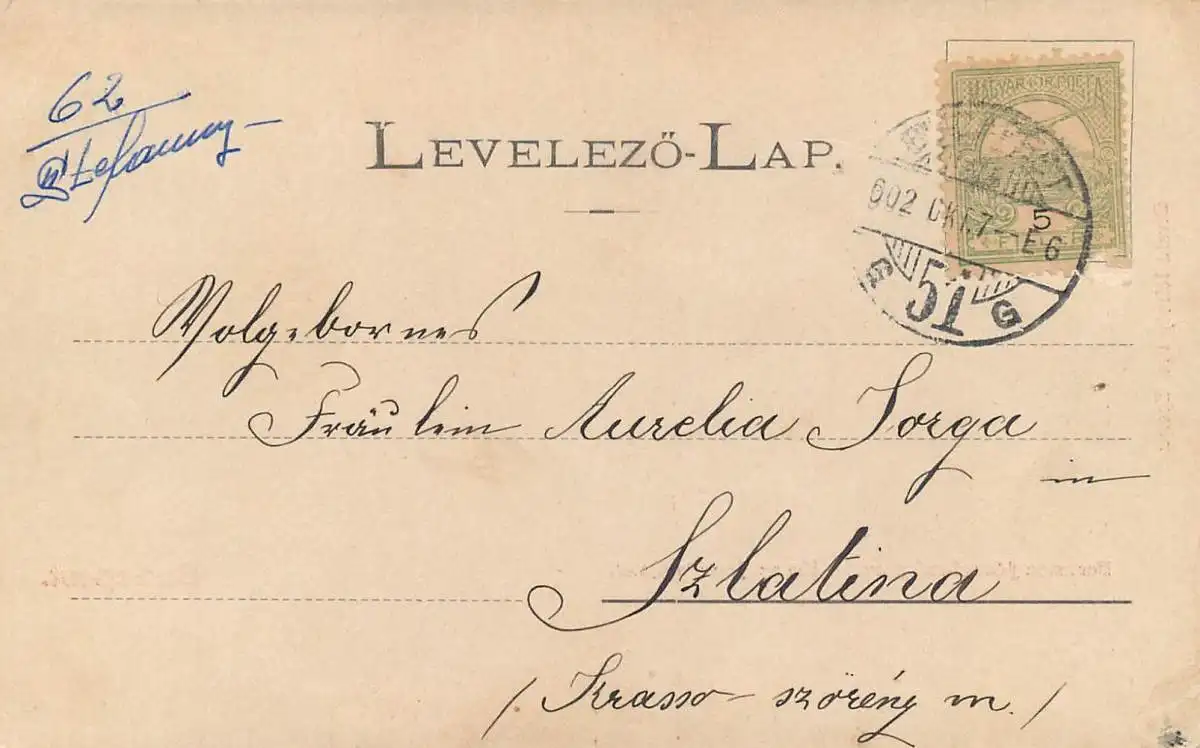 62
Stefanny
LEVELEZŐ-LAP.
MAGYAR KIR. POSTA
5
902 OKT. 7 - E6
51
G
Wolgebornes
Fräulein Aurelia Jorga
in
Szlatina
(Krasso-szörény m.)